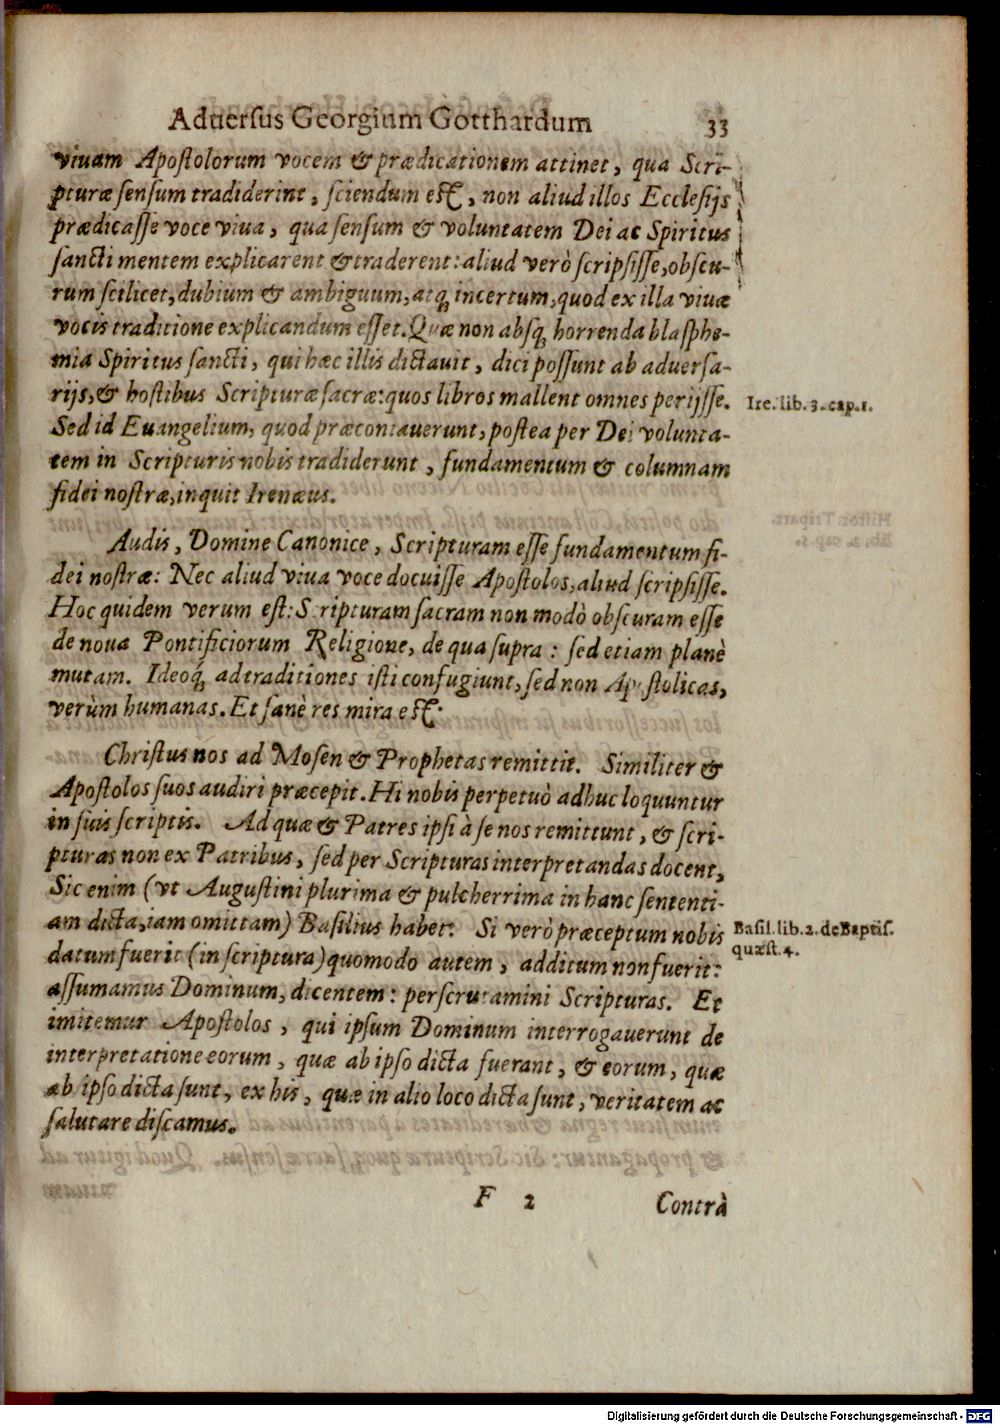 Aduersus Georgium Gotthardum 33
viuam Apostolorum vocem & prædicationem attinet, qua Scri-
pturæ sensum tradiderint, sciendum est, non aliud illos Ecclesijs
prædicasse voce viua, qua sensum & voluntatem Dei ac Spiritus
sancti mentem explicarent & traderent: aliud verò scripsisse, obscu-
rum scilicet, dubium & ambiguum, atq; incertum, quod ex illa viuæ
vocis traditione explicandum esset. Quæ non absq; horrenda blasphe-
mia Spiritus sancti, qui hæc illis dictauit, dici possunt ab aduersa-
rijs, & hostibus Scripturæ sacræ: quos libros mallent omnes perijsse.
Ire. lib. 3. cap. 1.
Sed id Euangelium, quod præconiauerunt, postea per Dei volunta-
tem in Scripturis nobis tradiderunt, fundamentum & columnam
fidei nostræ, inquit Irenæus.
Audis, Domine Canonice, Scripturam esse fundamentum fi-
dei nostræ: Nec aliud viua voce docuisse Apostolos, aliud scripsisse.
Hoc quidem verum est: Scripturam sacram non modò obscuram esse
de noua Pontificiorum Religione, de qua supra: sed etiam planè
mutam. Ideoq; ad traditiones isti confugiunt, sed non Apostolicas,
verùm humanas. Et sanè res mira est.
Christus nos ad Mosen & Prophetas remittit. Similiter &
Apostolos suos audiri præcepit. Hi nobis perpetuò adhuc loquuntur
in suis scriptis. Ad quæ & Patres ipsi à se nos remittunt, & scri-
pturas non ex Patribus, sed per Scripturas interpretandas docent,
Sic enim (vt Augustini plurima & pulcherrima in hanc sententi-
am dicta, iam omittam) Basilius habet: Si verò præceptum nobis
Basil. lib. 2. de Baptis.
quæst. 4.
datum fuerit (in scriptura) quomodo autem, additum non fuerit:
assumamus Dominum, dicentem: perscrutamini Scripturas. Et
imitemur Apostolos, qui ipsum Dominum interrogauerunt de
interpretatione eorum, quæ ab ipso dicta fuerant, & eorum, quæ
ab ipso dicta sunt, ex his, quæ in alio loco dicta sunt, veritatem ac
salutare discamus.
F 2 Contrà
Digitalisierung gefördert durch die Deutsche Forschungsgemeinschaft - DFG